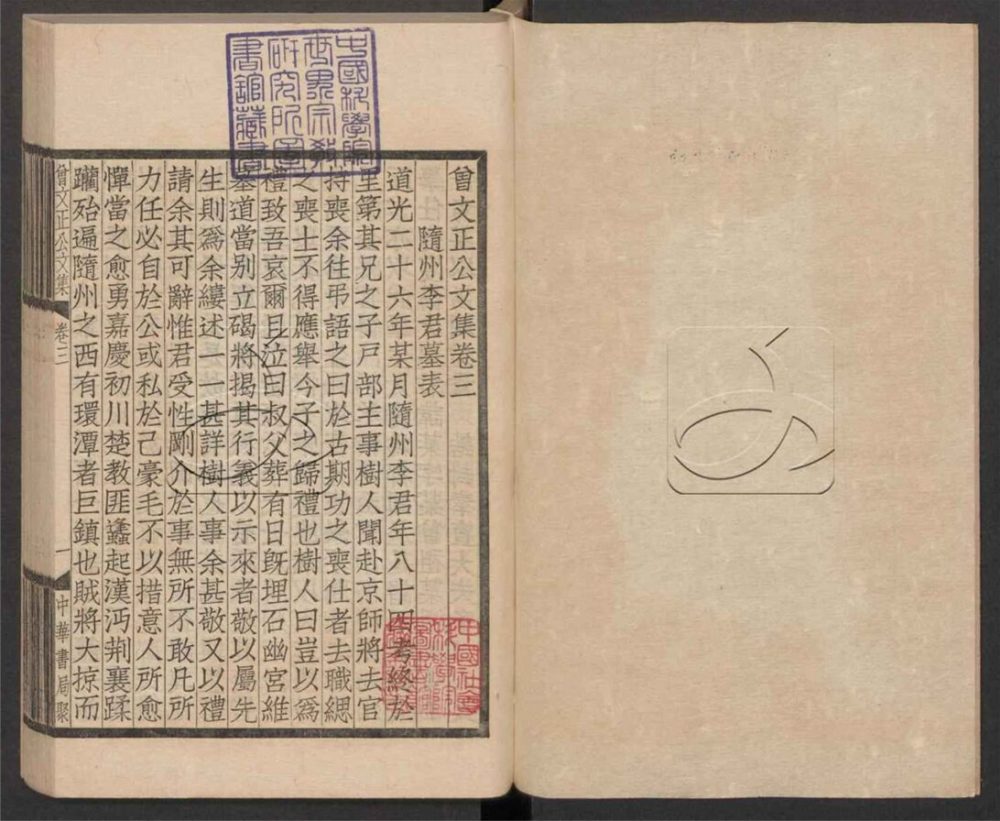 中國科學院
世界宗教
研究所圖
書館藏書
曾文正公文集卷三
隨州李君墓表
道光二十六年某月隨州李君年八十四考終於
里第其兄之子戸部主事樹人聞赴京師將去官
持喪余往弔語之曰於古期功之喪仕者去職緦
之喪士不得應舉今子之歸禮也樹人曰豈以爲
禮致吾哀爾且泣曰叔父葬有日既埋石幽宮維
墓道當别立碣將揭其行義以示來者敬以屬先
生則爲余縷述一一甚詳樹人事余甚敬又以禮
請余其可辭惟君受性剛介於事無所不敢凡所
力任必自於公或私於己豪毛不以措意人所愈
憚當之愈勇嘉慶初川楚教匪蠭起漢沔荆襄蹂
躪殆遍隨州之西有環潭者巨鎮也賊將大掠而
曾文正公文集 卷三
一
中華書局聚
中國社會
科學院